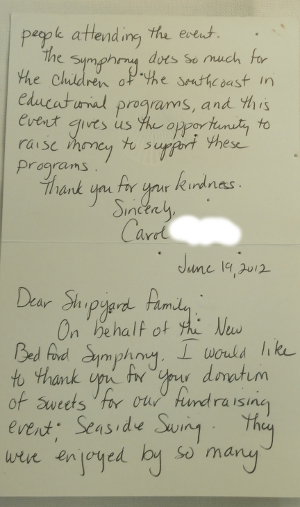 people attending the event.
The Symphony does so much for
the children of the southcoast in
educational programs, and this
event gives us the opportunity to
raise money to support these
programs.
Thank you for your kindness.
Sincerely,
Carol
June 19, 2012
Dear Shipyard Family:
On behalf of the New
Bedford Symphony, I would like
to thank you for your donation
of sweets for our fundraising
event; Seaside Swing. They
were enjoyed by so many